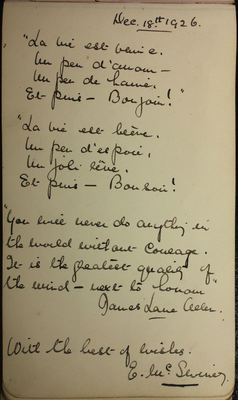 Dec. 18th 1926.
"La vie est vaine.
Un peu d'amour -
Un peu de haine.
Et puis - Bonjour!"
"La vie est brève.
Un peu d'espoir,
Un joli rêve.
Et puis - Bonsoir!"
"You will never do anything in
the world without courage.
It is the greatest quality of
the mind - next to honour"
James Lane Allen.
With the best of wishes.
E. Mc Swiney